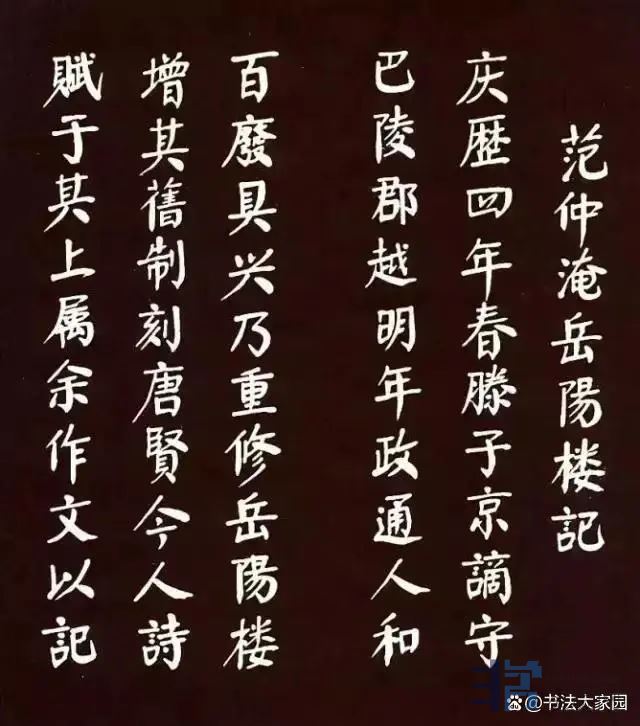 范仲淹岳陽楼記
庆歷四年春滕子京謫守
巴陵郡越明年政通人和
百廢具兴乃重修岳陽楼
增其舊制刻唐賢今人詩
賦于其上属余作文以記
@书法大家园